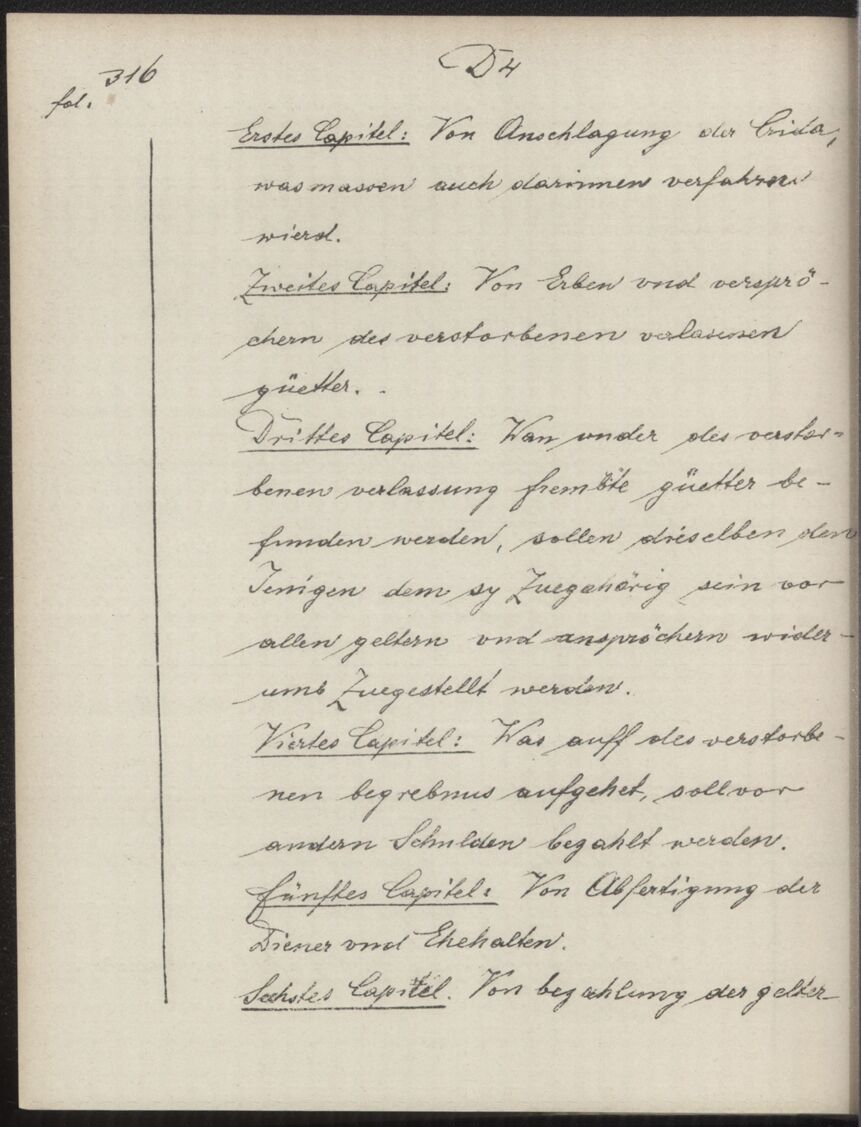 D4
fol. 316
Erstes Capitel: Von Anschlagung der Crida,
was massen auch darinnen verfahren
wierd.
Zweites Capitel: Von Erben vnd versprö-
chern des verstorbenen verlassnen
güetter.
Drittes Capitel: Wan vnder des verstor-
benen verlassung frembte güetter be-
funden werden, sollen dieselben den
Jenigen dem sy Zuegehörig sein vor
allen geltern vnd anspröchern wider-
umb Zuegestellt werden.
Viertes Capitel: Was auff des verstorbe-
nen begrebnus aufgehet, soll vor
andern Schulden bezahlt werden.
fünftes Capitel: Von Abfertigung der
Diener vnd Ehehalten.
Sechstes Capitel. Von bezahlung der gelter